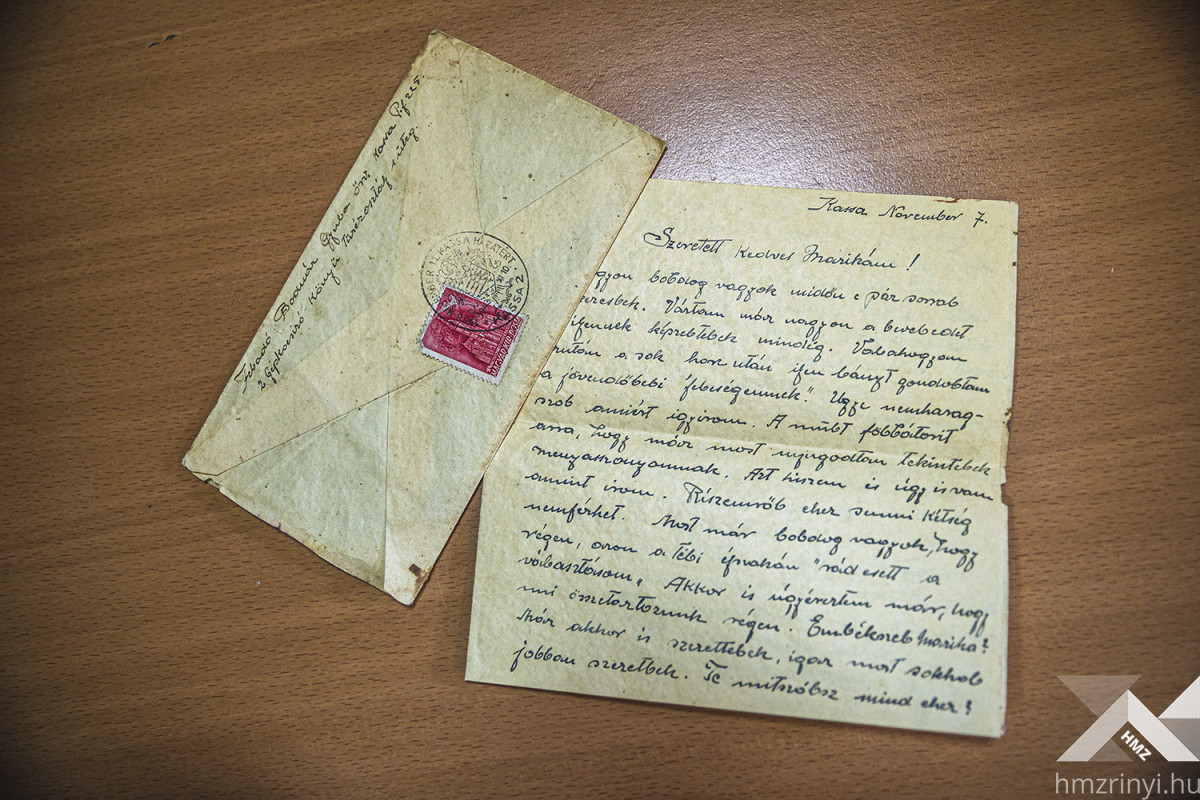 Bodnár Gyula őrv. Kassa Pf 225.
2 Gépkocsizó Könnyű tarézosztály 1. üteg.
KASSA 2
MAGYAR KIR. POSTA
Kassa November 7.
Szeretett Kedves Marikám!
gyon boldog vagyok midőn e pár sorral
eresbek. Vártam már nagyon a leveledet
ilyennek képzeltelek mindég. Valahogyan
zután a sok hosz után ilyen lányt gondoltam
a jövendőbeli "feleségemnek". Ugye nemharag-
szol amiért igyirom. A múlt följólatosit
arra, hogy már most nyugodtan tekintelek
menyasszonyomnak. Azt hiszem ez úgy isvan
amint irom. Részemről ehez semmi Kétség
nemférhet. Most már boldog vagyok, hogy
régen, azon a téli éjszakán "rád esett a
választásom". Akkor is úgyéreztem már, hogy
mi összetartozunk régen. Emlékszel Marika?
Már akkor is szerettelek, igaz most sokkal
jobban szeretlek. Te mitszólsz mind ehez?
HMZ
hmzrinyi.hu